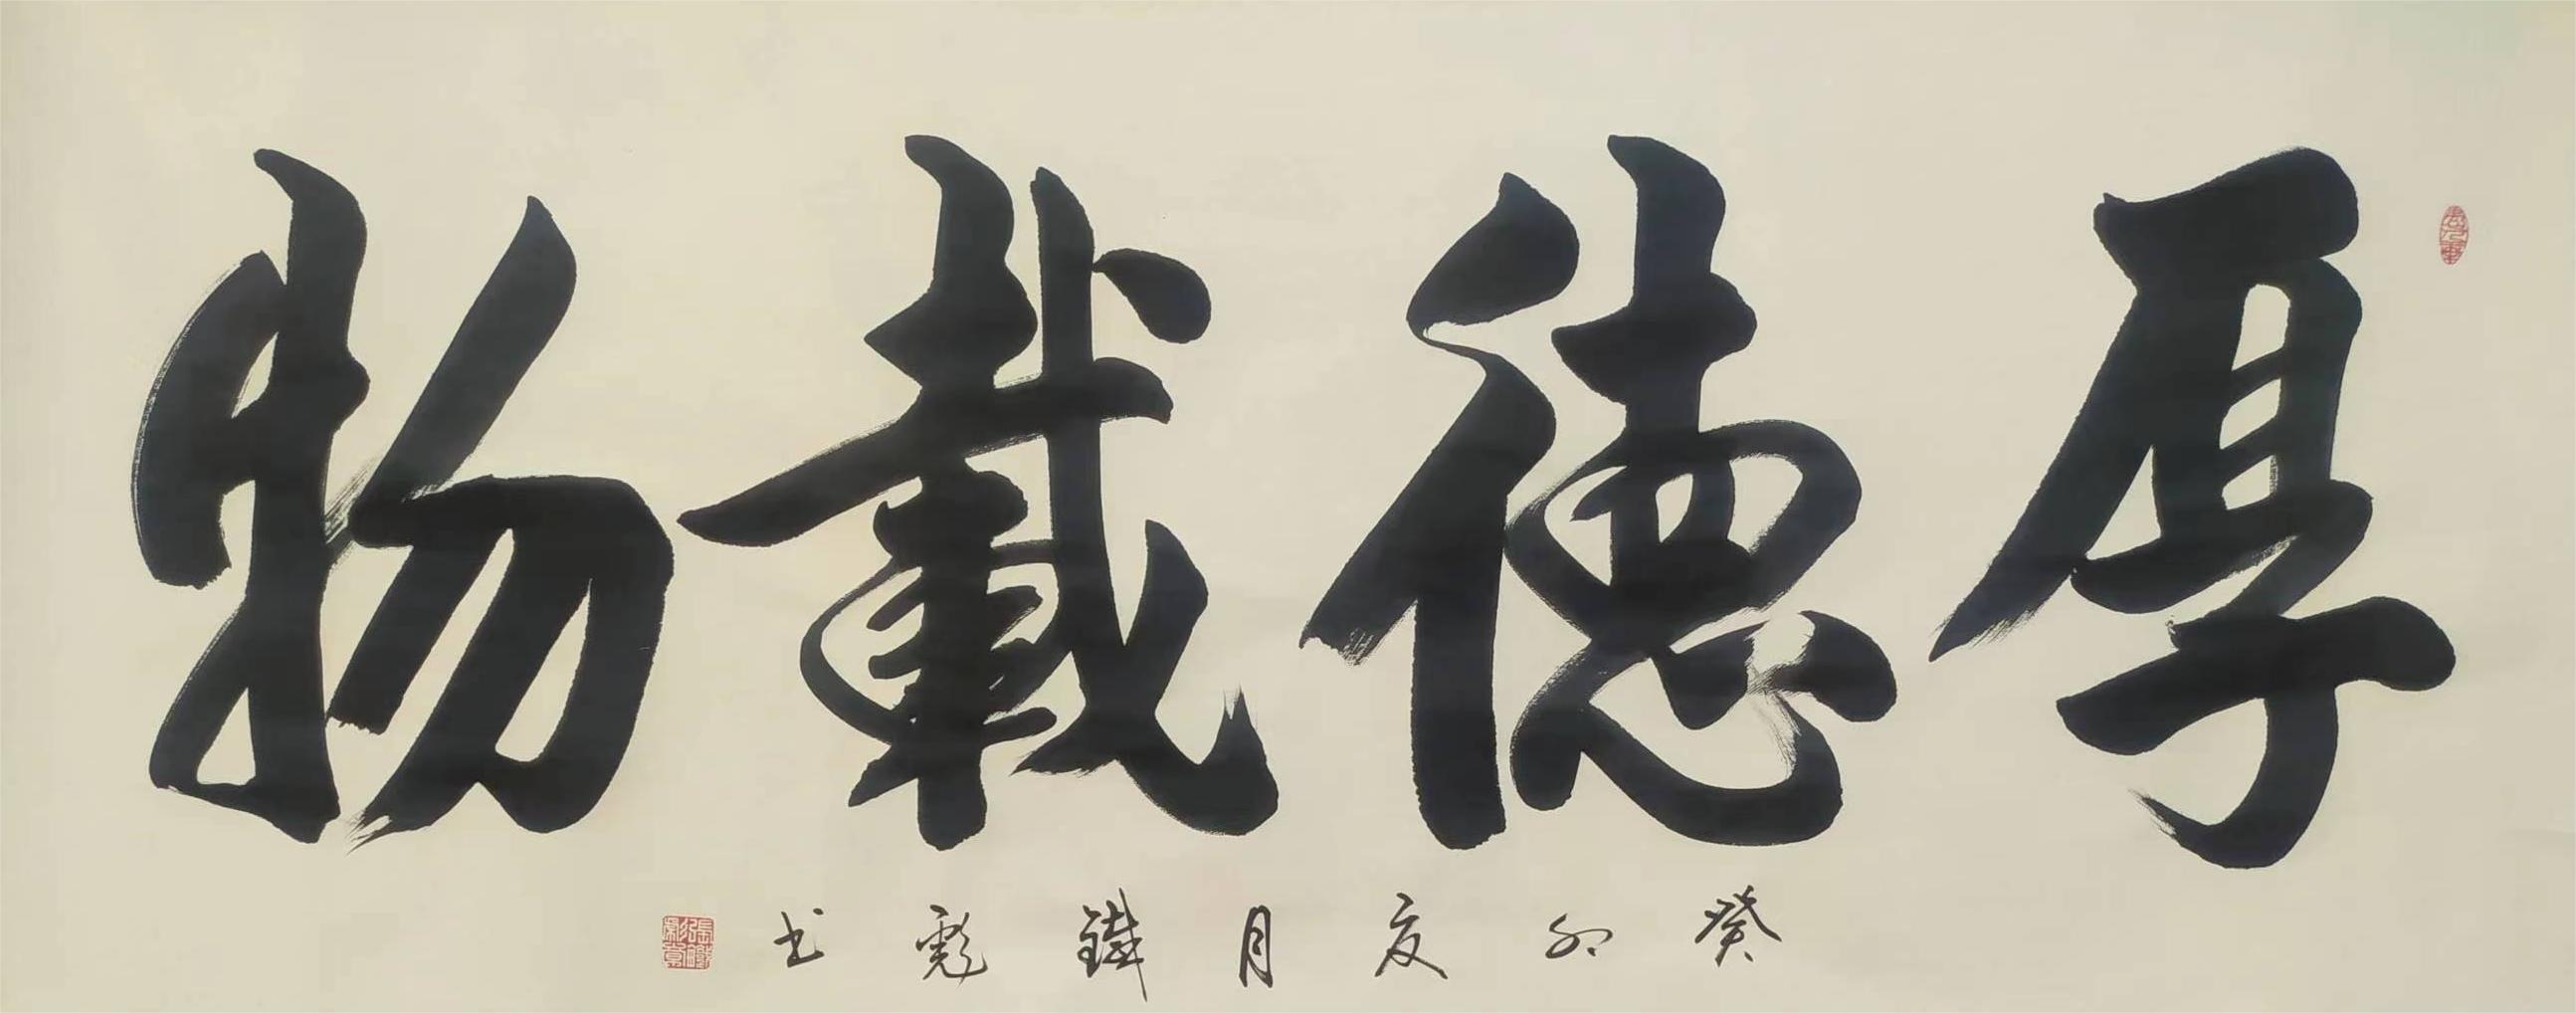 厚德載物
癸卯夏月鐵彪书